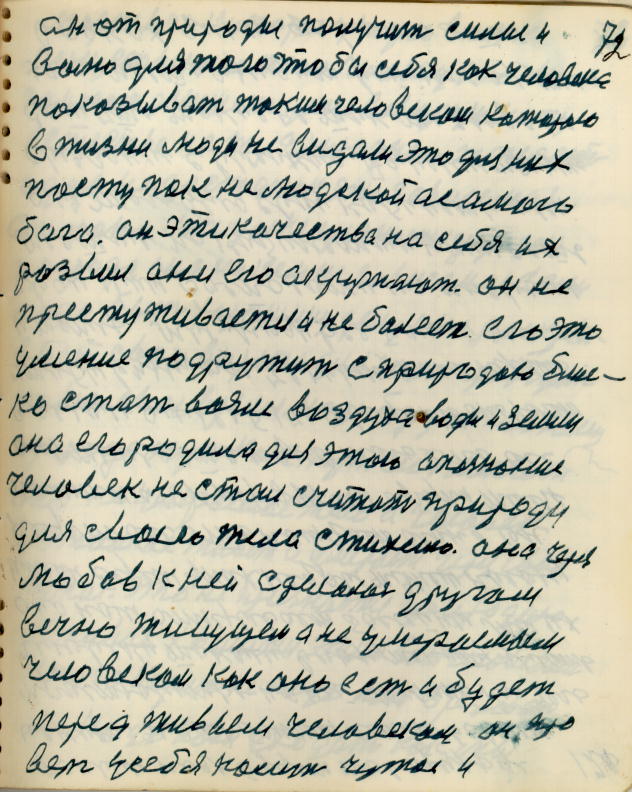 72
ан от природы получит силы и
волю для того что бы себя как человека
показыват таким человеком которого
в жизни люди не видали это для них
поступок не людской а самого
бога. он эти качества на себя их
развил они его окружают. он не
простуживается и не болеет. его это
умение подружит с природою блис-
ко стат возле воздуха воды и земли
она его родила для этого
человек не стал считат природу
для своего тела стихию. она через
любов к ней сделалас другом
вечно живущем а не умераемым
человеком как оно ест и будет
перед живыем человеком он
у себя чужое и